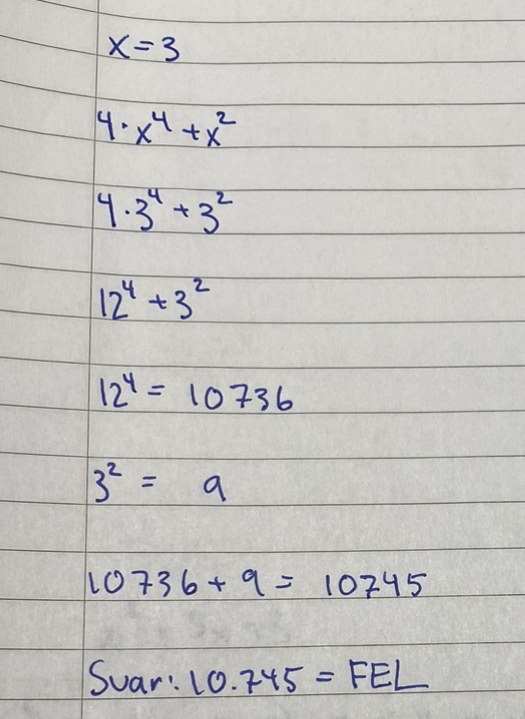 x=3
4·x⁴+x²
4·3⁴+3²
12⁴+3²
12⁴= 10736
3² = 9
10736+9= 10745
Svar: 10.745 = FEL